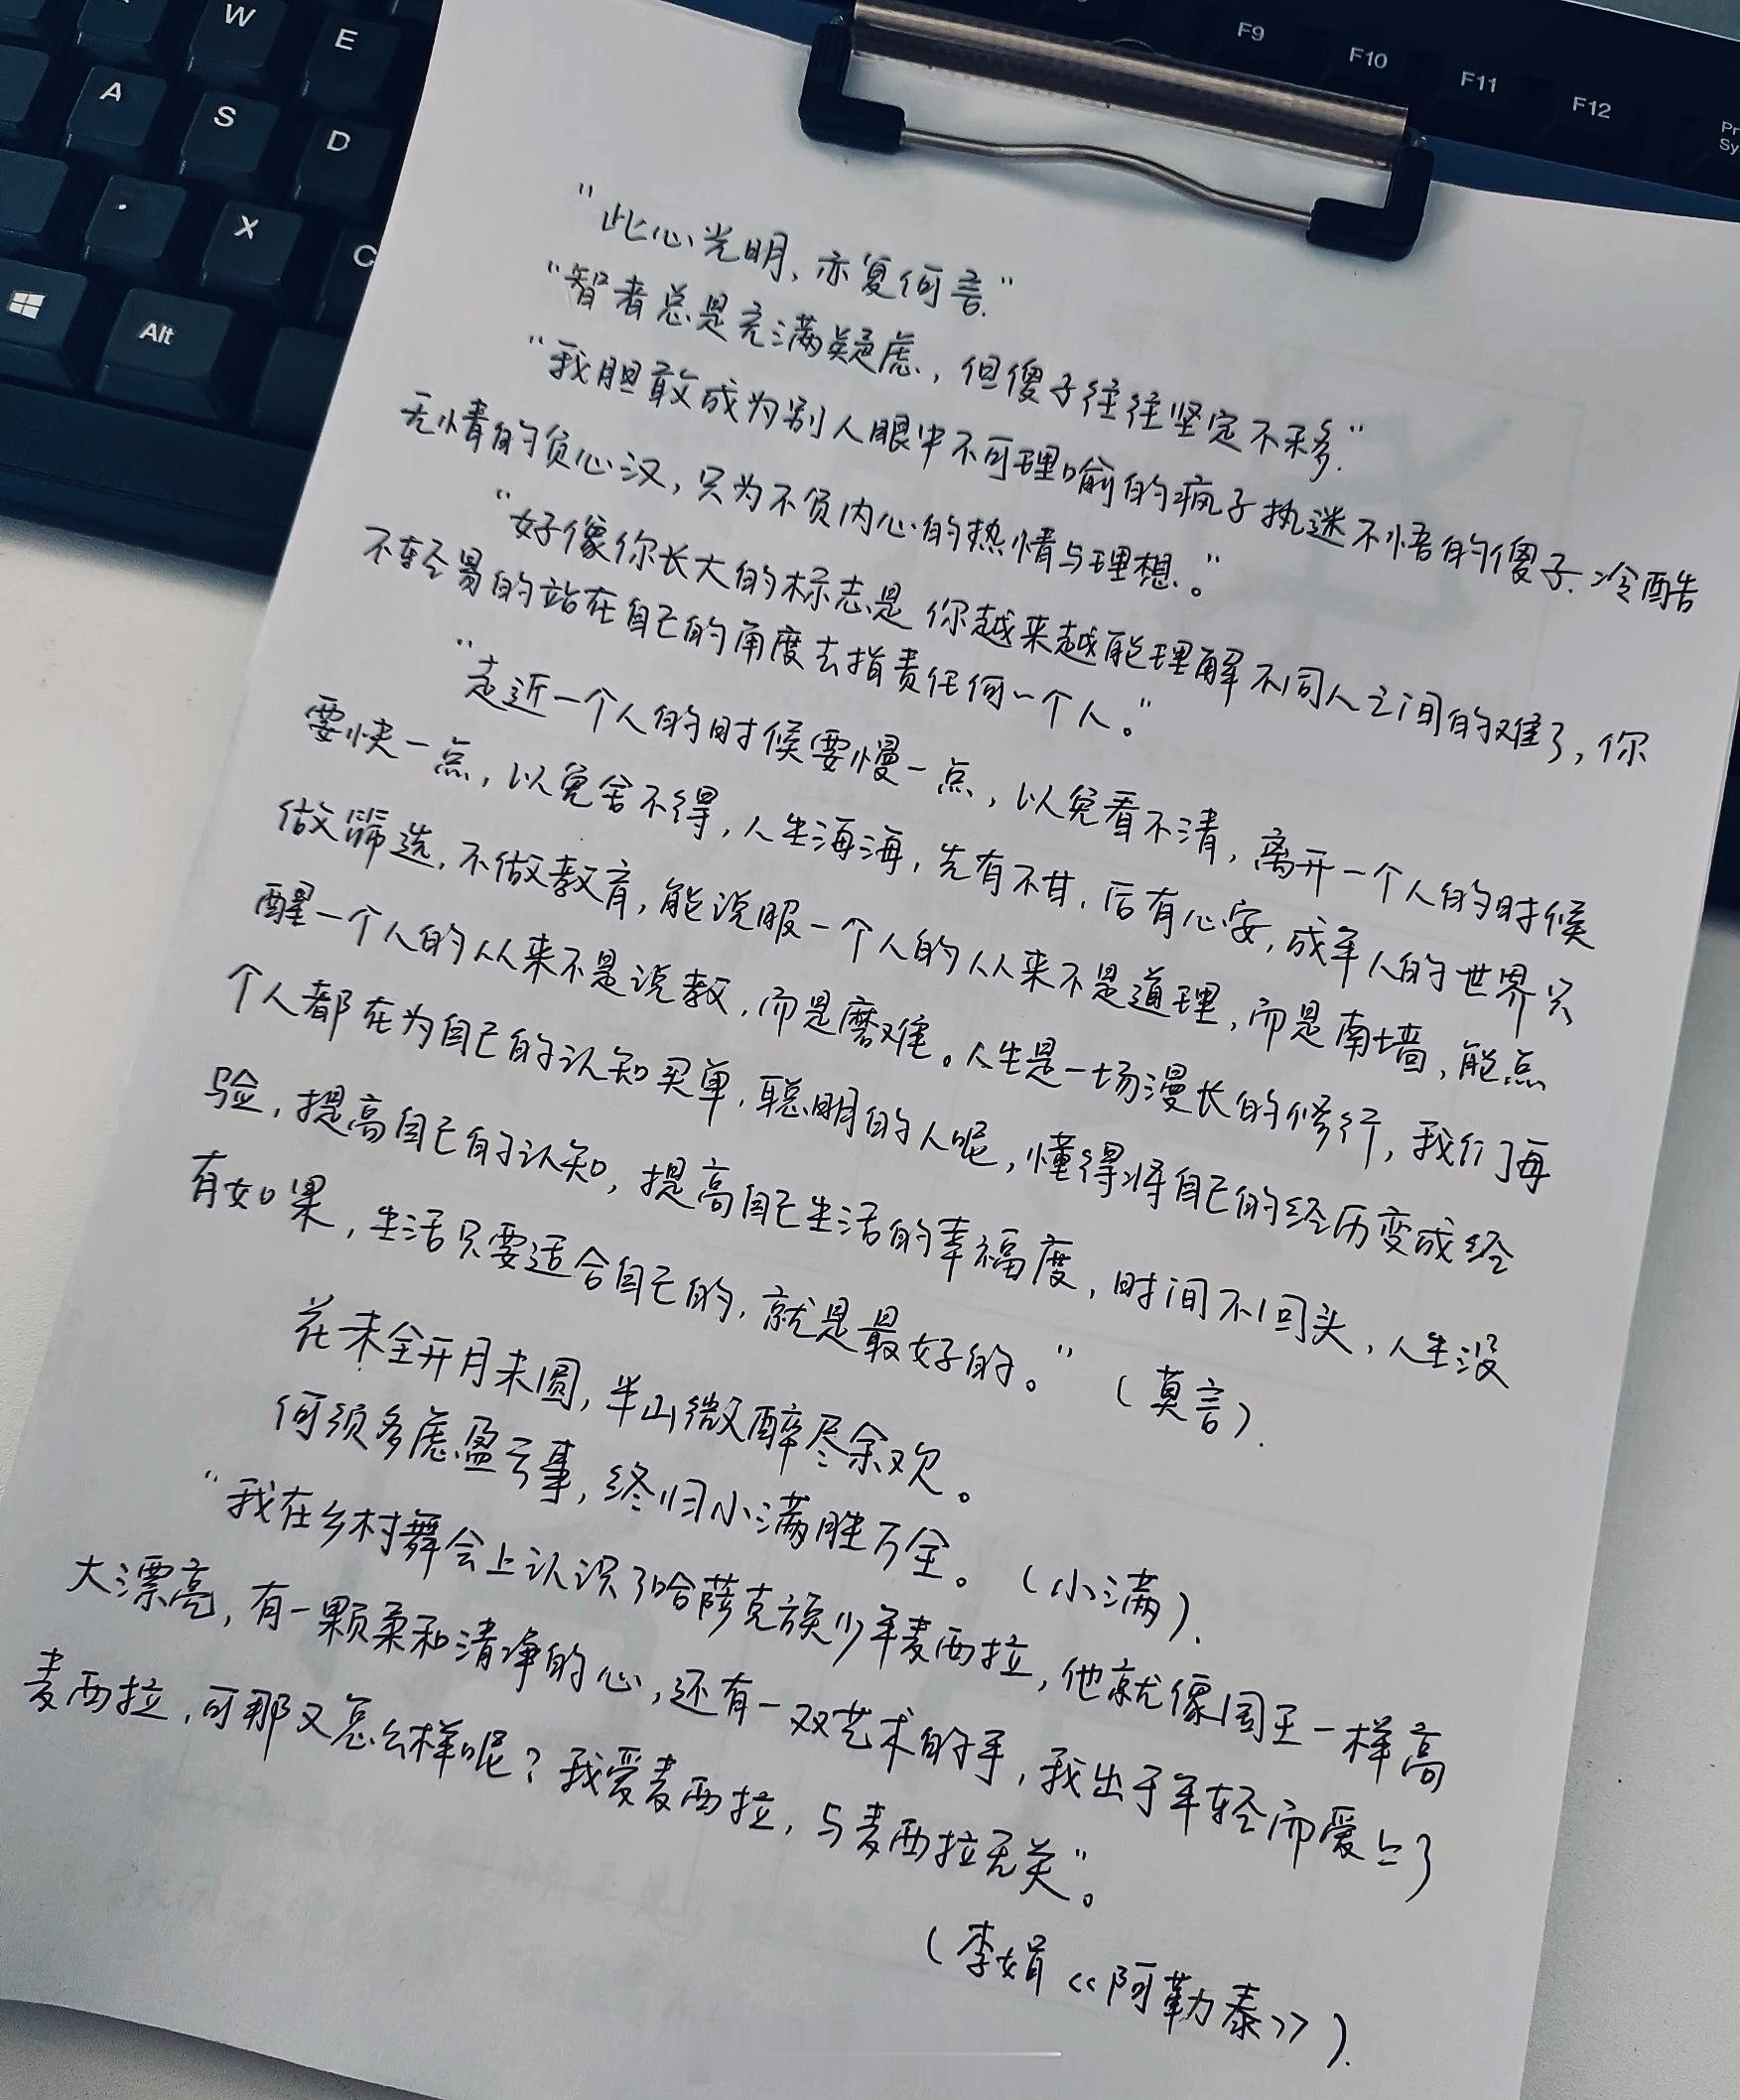 W
E
F9
F10
F11
F12
A
S
D
X
C
Alt
Pr
Sy
"此心光明,亦复何言."
"智者总是充满疑虑,但傻子往往坚定不移."
"我胆敢成为别人眼中不可理喻的疯子执迷不悟的傻子.冷酷
无情的负心汉,只为不负内心的热情与理想。"
"好像你长大的标志是 你越来越能理解不同人之间的难了,你
不轻易的站在自己的角度去指责任何一个人。"
"走近一个人的时候要慢一点,以免看不清,离开一个人的时候
要快一点,以免舍不得,人生海海,先有不甘,后有心安,成年人的世界只
做筛选,不做教育,能说服一个人的从来不是道理,而是南墙,能点
醒一个人的从来不是说教,而是磨难。人生是一场漫长的修行,我们每
个人都在为自己的认知买单,聪明的人呢,懂得将自己的经历变成经
验,提高自己的认知,提高自己生活的幸福度,时间不回头,人生没
有如果,生活只要适合自己的,就是最好的。"(莫言).
花未全开月未圆,半山微醉尽余欢。
何须多虑盈亏事,终归小满胜万全。(小满).
"我在乡村舞会上认识了哈萨克族少年麦西拉,他就像国王一样高
大漂亮,有一颗柔和清净的心,还有一双艺术的手,我出于年轻而爱上了
麦西拉,可那又怎么样呢?我爱麦西拉,与麦西拉无关"。
(李娟《阿勒泰》).